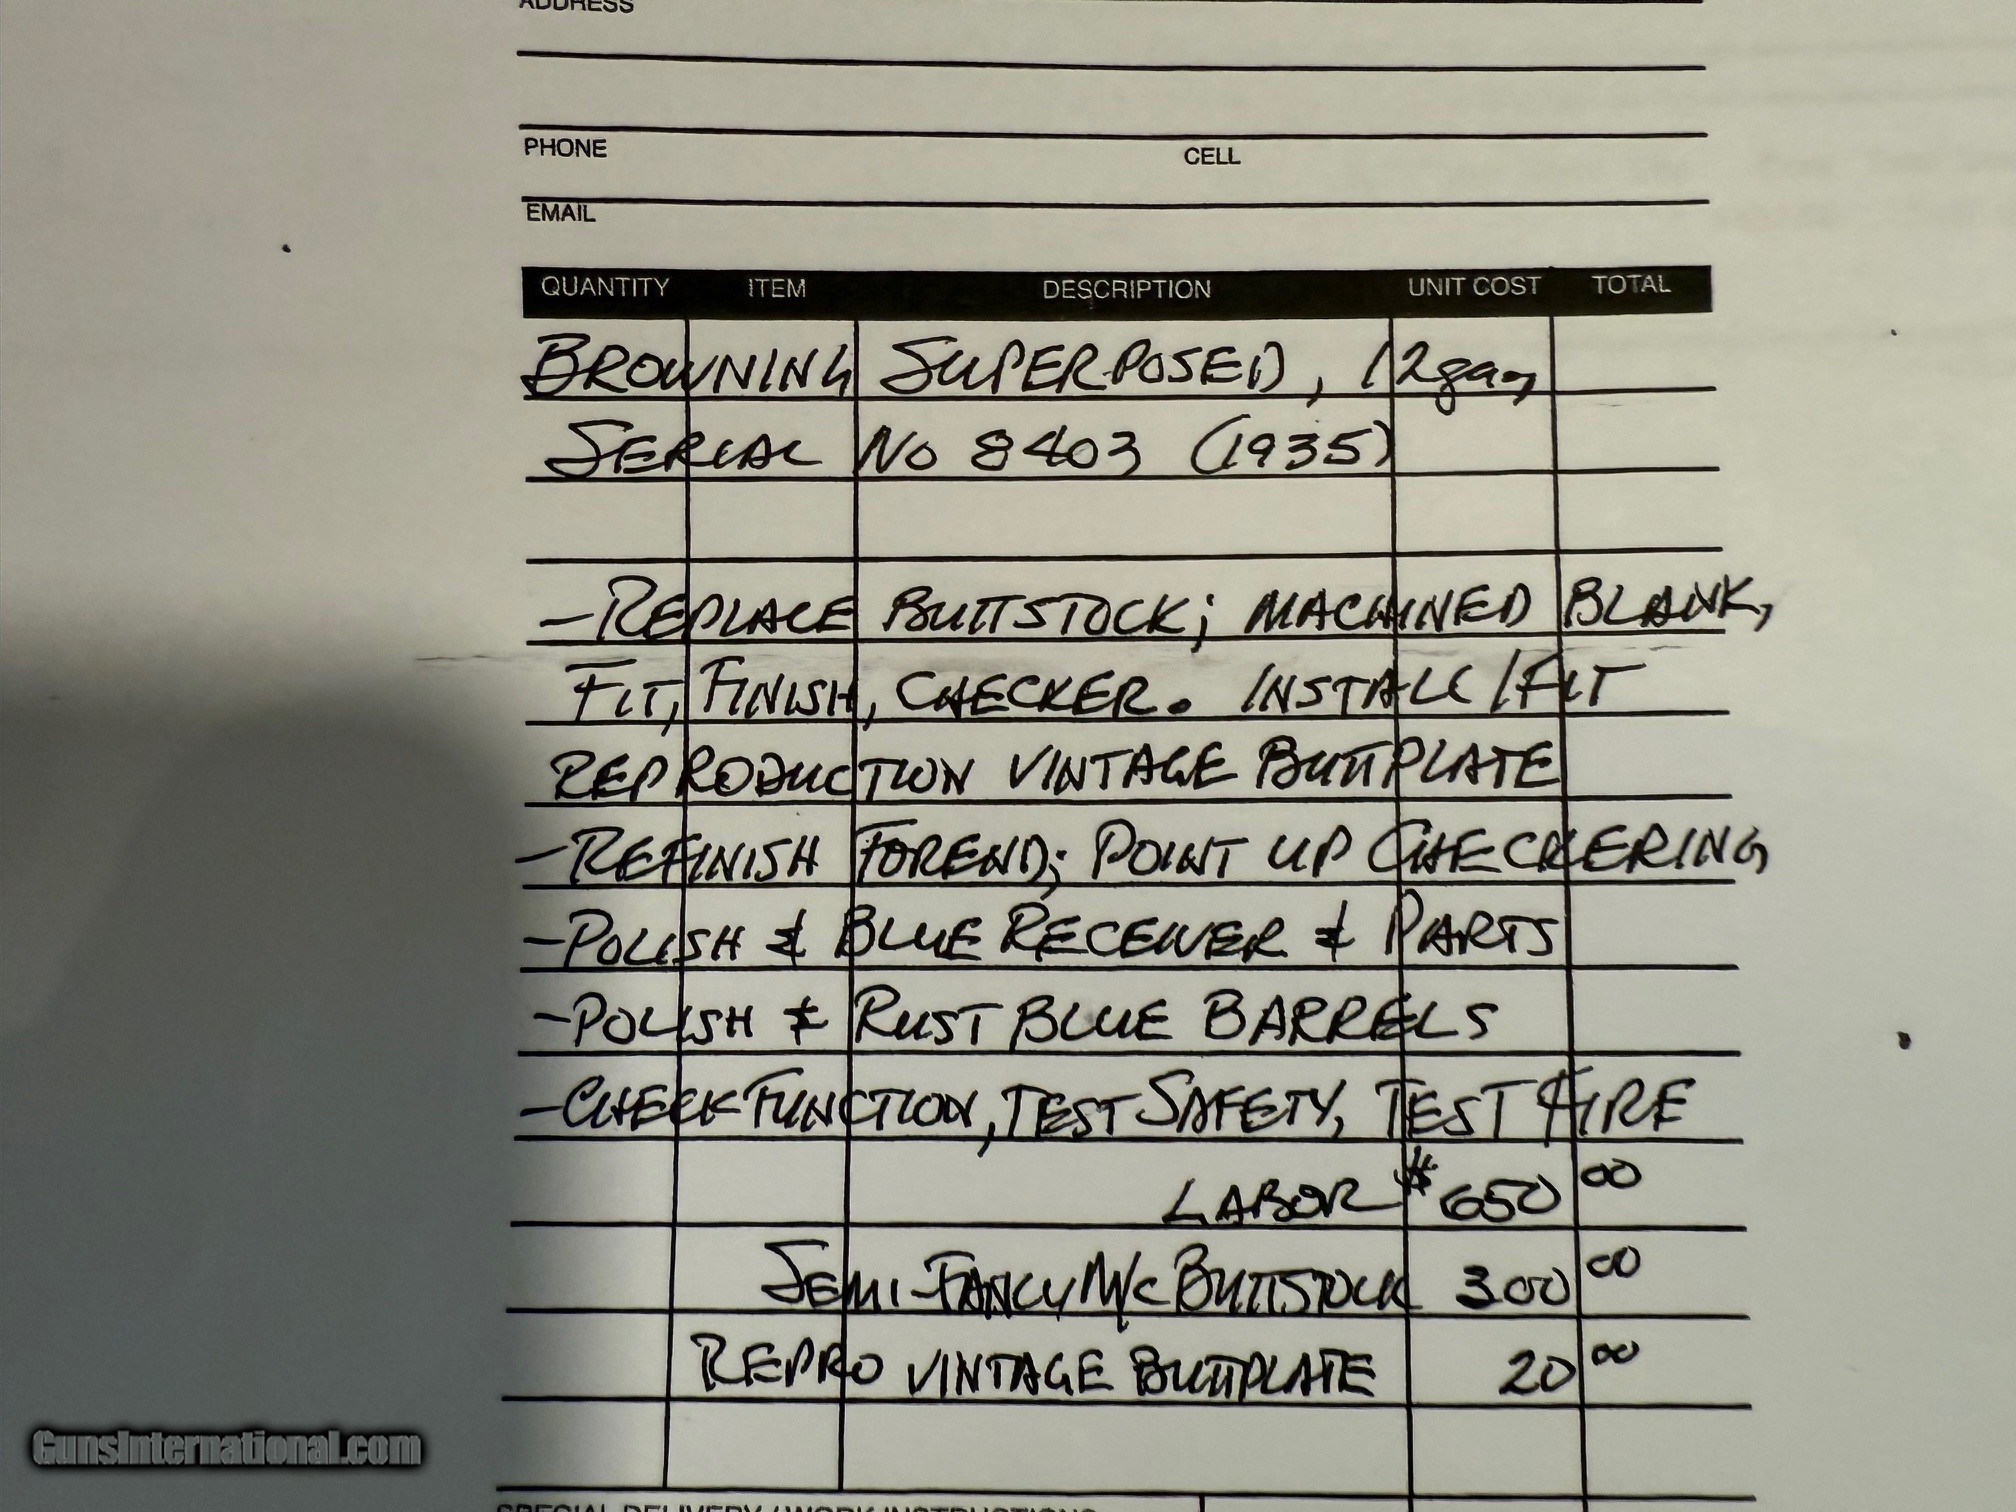 ADDRESS
PHONE CELL
EMAIL
QUANTITY ITEM DESCRIPTION UNIT COST TOTAL
BROWNING SUPERPOSED, 12ga,
SERIAL NO 8403 (1935)
-REPLACE BUTTSTOCK; MACHINED BLANK,
FIT, FINISH, CHECKER. INSTALL/FIT
REPRODUCTION VINTAGE BUTTPLATE
-REFINISH FOREND; POINT UP CHECKERING
-POLISH & BLUE RECEIVER & PARTS
-POLISH & RUST BLUE BARRELS
-CHECK FUNCTION, TEST SAFETY, TEST FIRE
LABOR $650 00
SEMI-FANCY M/C BUTTSTOCK 300 00
REPRO VINTAGE BUTTPLATE 20 00
SPECIAL DELIVERY / WORK INSTRUCTIONS
GunsInternational.com